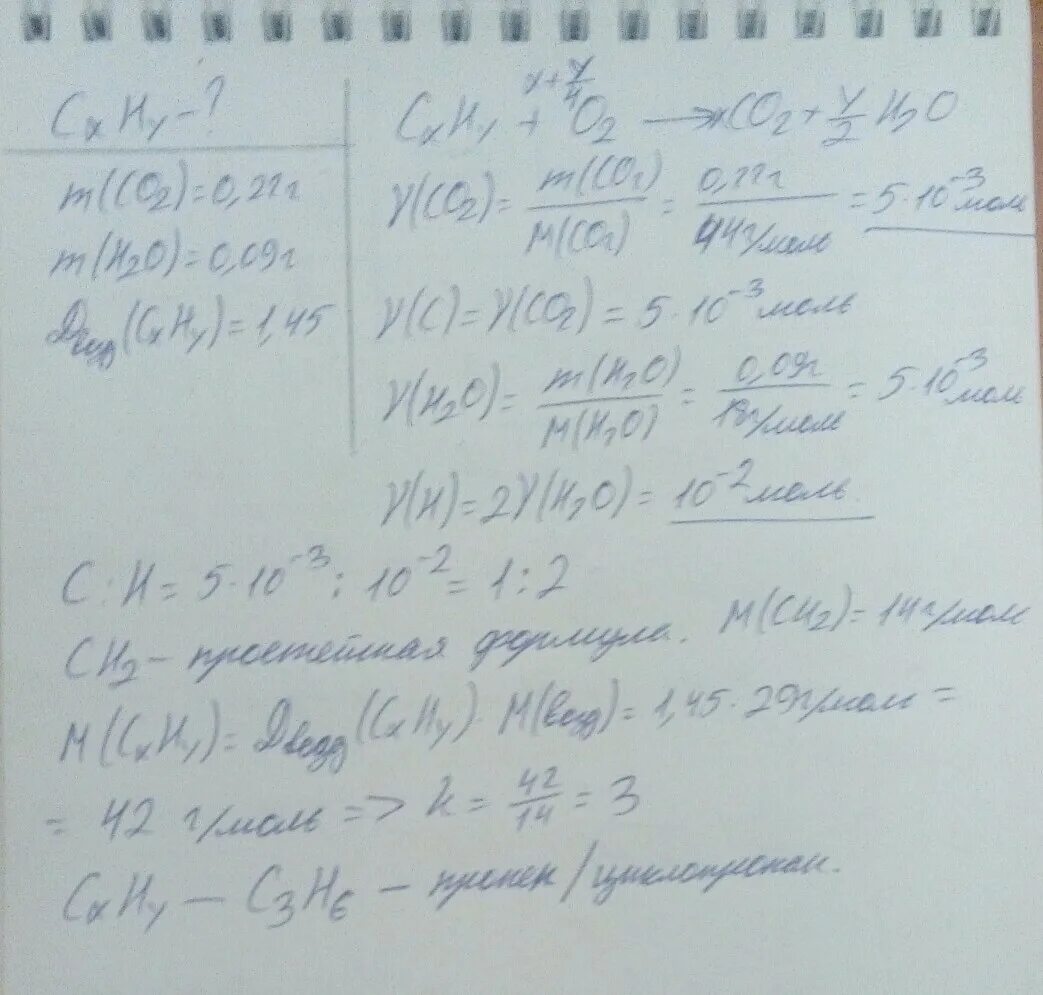 CₓHᵧ – ?
m(CO₂) = 0,22г
m(H₂O) = 0,09г
Dвозд(CₓHᵧ) = 1,45
CₓHᵧ + x+y/4 O₂ → xCO₂ + y/2 H₂O
γ(CO₂) = m(CO₂)/M(CO₂) = 0,22г/44г/моль = 5·10⁻³ моль
γ(C) = γ(CO₂) = 5·10⁻³ моль
γ(H₂O) = m(H₂O)/M(H₂O) = 0,09г/18г/моль = 5·10⁻³ моль
γ(H) = 2γ(H₂O) = 10⁻² моль
C : H = 5·10⁻³ : 10⁻² = 1 : 2
CH₂ – простейшая формула. M(CH₂) = 14г/моль
M(CₓHᵧ) = Dвозд(CₓHᵧ)·M(возд) = 1,45·29г/моль =
= 42 г/моль => k = 42/14 = 3
CₓHᵧ – C₃H₆ – пропен/циклопропан.